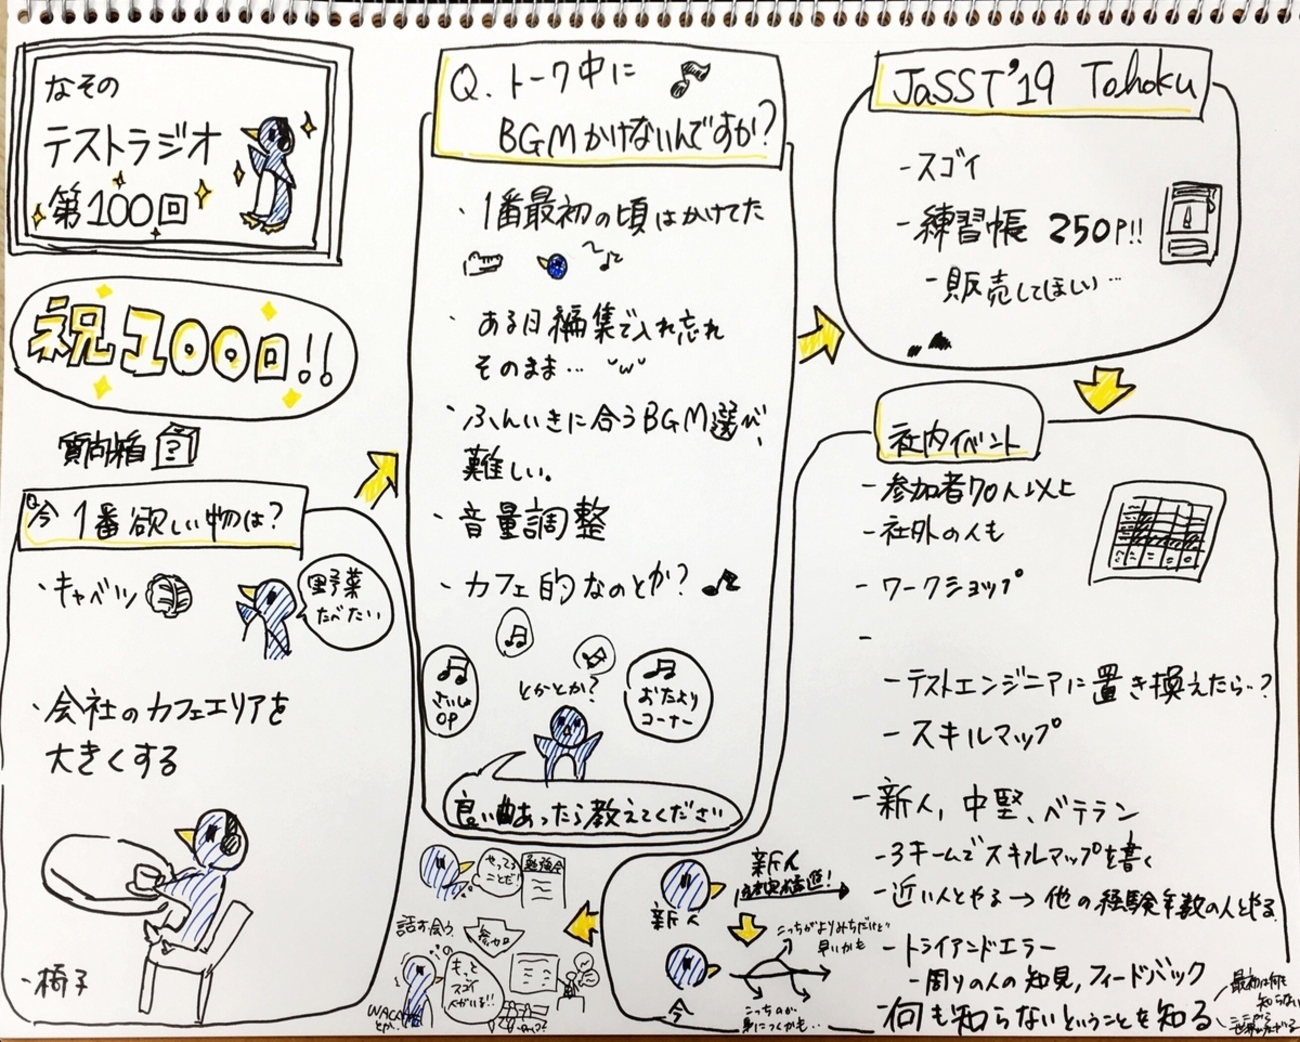 なその
テストラジオ
第100回
祝100回!!
質問箱 ?
Q 今1番欲しい物は?
・キャベツ
野菜
たべたい
・会社のカフェエリアを
大きくする
・椅子
Q. トーク中に
BGMかけないんですか?
・1番最初の頃はかけてた
・ある日編集で入れ忘れ
そのまま… ˘w˘
・ふんいきに合うBGM選び、
難しい。
・音量調整
・カフェ的なのとか?
さいしょ
OP
とかとか?
おたより
コーナー
良い曲あったら教えてください
JaSST'19 Tohoku
- スゴイ
- 練習帳 250P!!
- 販売してほしい…
社内イベント
- 参加者70人以上
- 社外の人も
- ワークショップ
-
- テストエンジニアに置き換えたら‥?
- スキルマップ
- 新人、中堅、ベテラン
- 3チームでスキルマップを書く
- 近い人とやる→他の経験年数の人とやる
- トライアンドエラー
- 周りの人の知見,フィードバック
- 何も知らないということを知る
最初は何も
知らない
新人
新人
今
こっちがよりみちだけど
早いかも
こっちのが
身につくかも‥
やってる
ことだ!
勉強会
話す会う
参加
もっと
スゴイ
人がいる!!
WACATE
とか‥